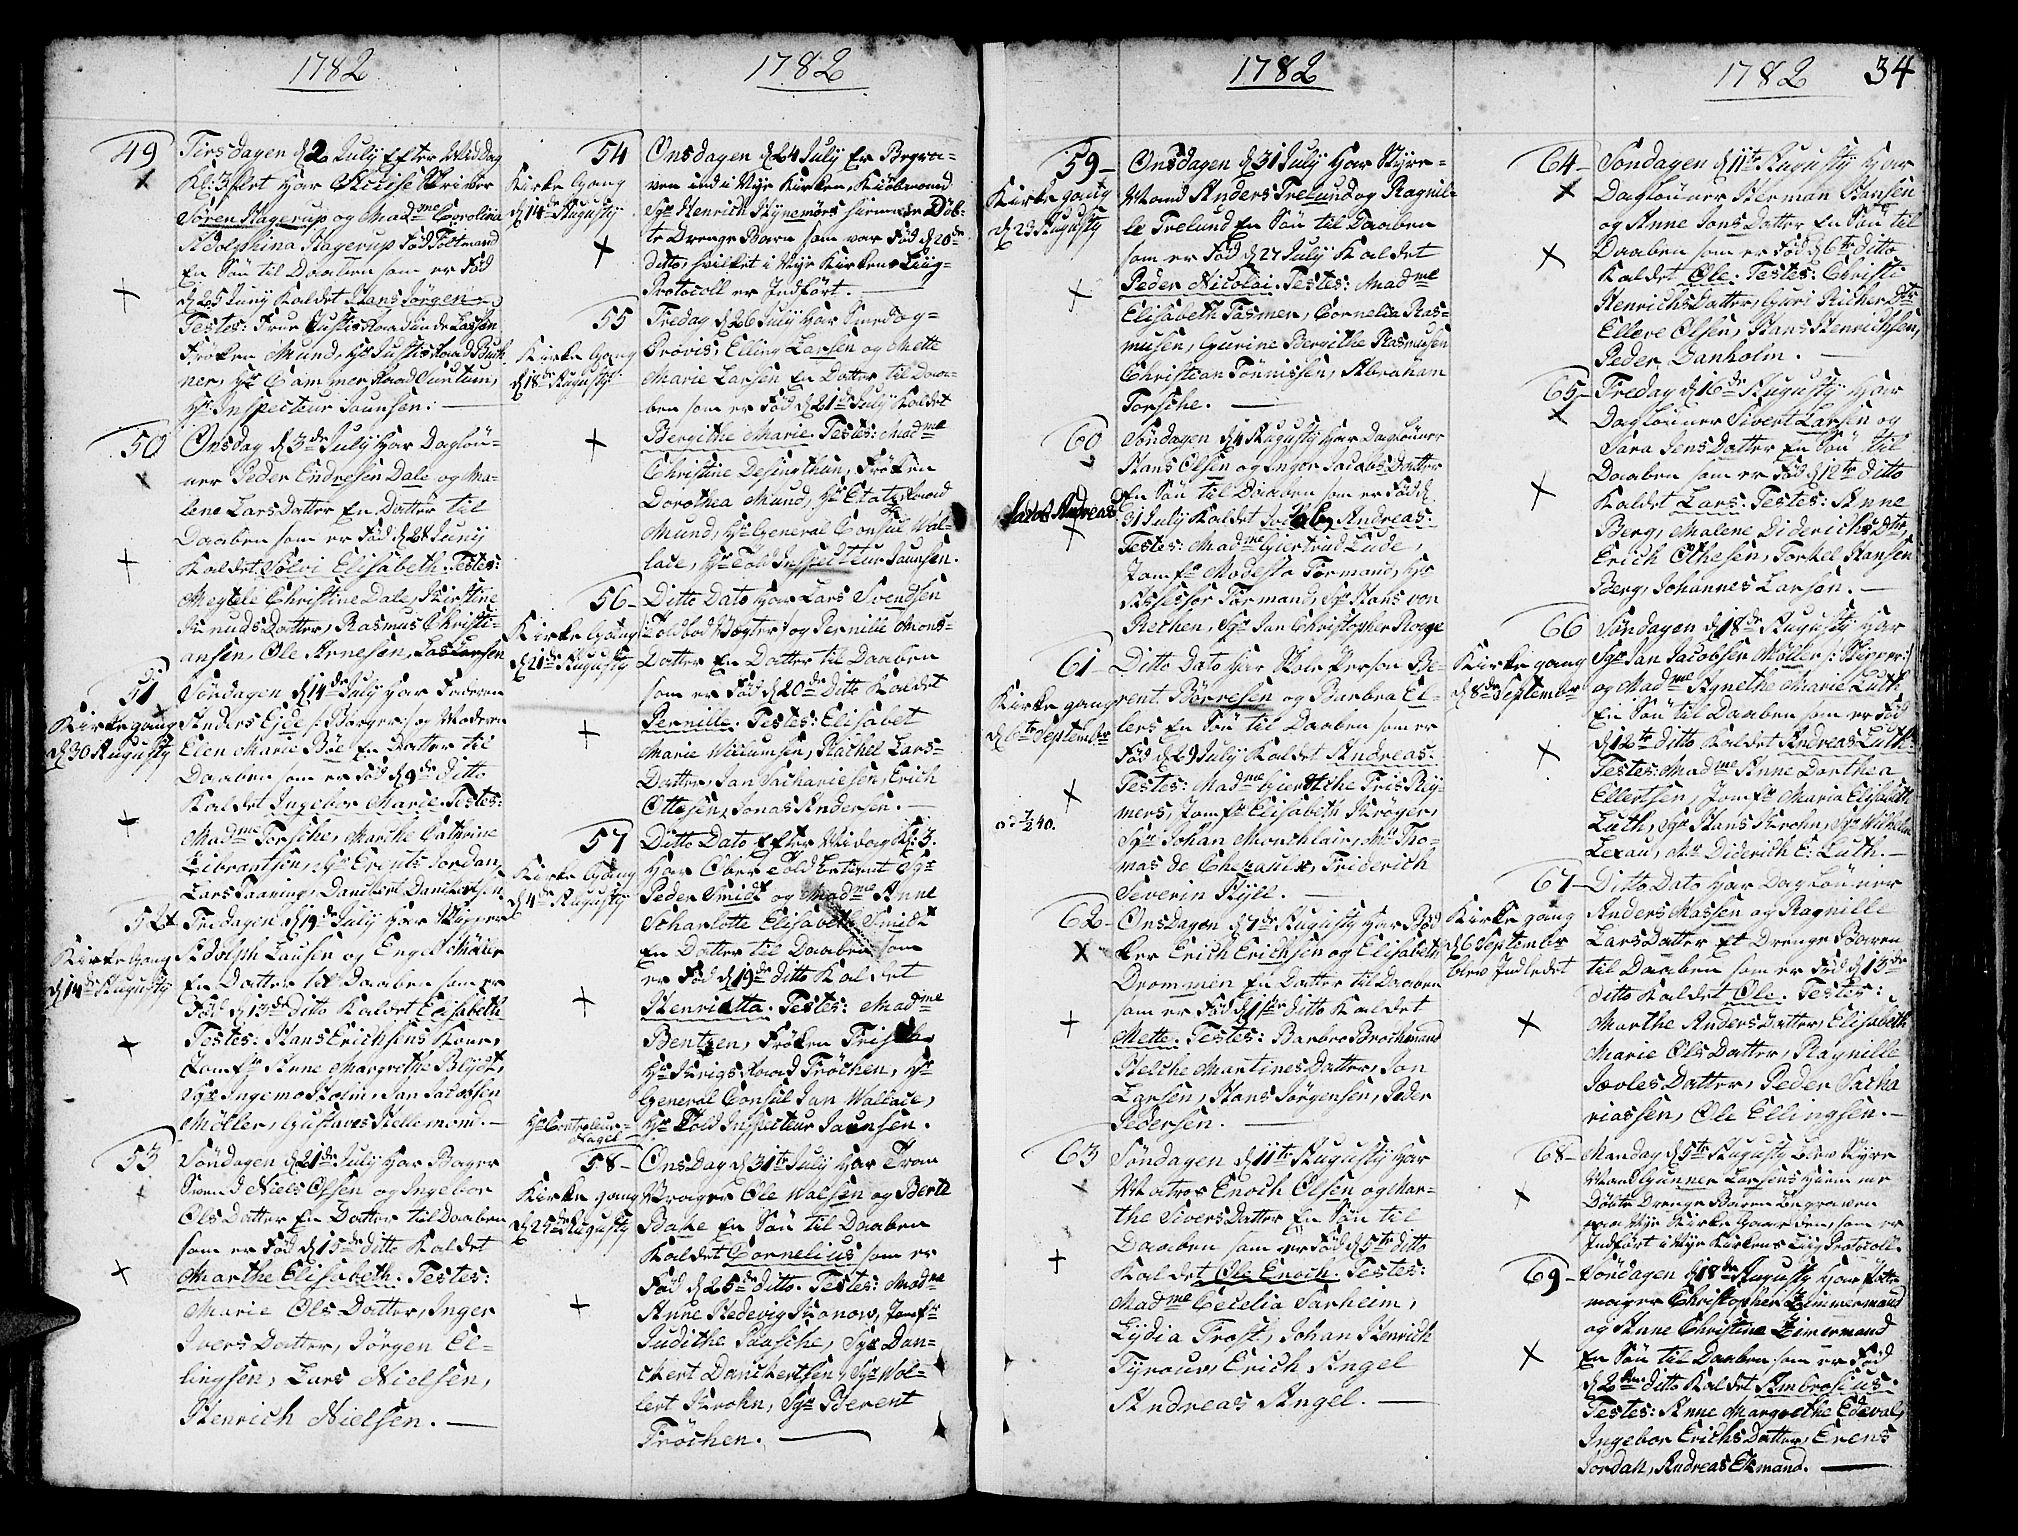 1782
49
Tirsdagen d. 2 July Efter Middag
Kl: 3 slet har Skriver
Søren Hagerup og Mad.me Carolina
Adolphina Hagerup Fød Foltmand
En Søn til Daaben som er Fød
d. 25 Juny Kaldet Hans Jørgen.
Testes: Frue Justisraadinde Lassen
Frøken Mund, Hr. Justisraad Buth-
ner, Hr. Cammer Raad
Hr. Inspecteur Jaunsen:
50
Onsdag d. 3de July har Dagløn-
ner Peder Endresen Dale og Ma-
lene Lars Datter En Datter til
Daaben som er Fød d. 28 Juny
Kaldet Sølvi Elisabeth. Testes:
Megtele Christine Dale, Kirstine
Knuds Datter, Rasmus Christi-
ansen, Ole Arnesen, Las Larsen
51
Kirke gang
d. 30 Augusty
Søndagen d. 14de July har Faderen
Anders Ejde /: Borger :/ og Moderen
Elen Marie Böe En Datter til
Daaben som er Fød d. 9de ditto
Kaldet Ingebor Marie. Testes:
Mad.me Forsche, Marthe Cathrine
Librantsen, Hr. Erents Jordan,
Lars Faaning, Danckert Danckertsen
52
Kirke Gang
d. 14de Augusty
Fredagen d. 19de July har Skipper
Adolph Lausen og Engel Møller
En Datter til Daaben som er
Fød d. 13de ditto Kaldet Elisabeth
Testes: Hans Erichsens Kone,
Jomfr. Anne Margrethe Blydt,
Sgr. Ingemo Holm, Jan Jacobsen
Møller, Gustaves Hellemom.
53
Søndagen d. 21de July har Bager
Svend Niels Olsen og Ingebor
Ols Datter En Datter til Daaben
som er Fød d. 15de ditto Kaldet
Marthe Elisabeth. Testes:
Marie Ols Datter, Inger
Ivers Datter, Jørgen El-
lingsen, Lars Nielsen,
Henrich Nielsen.
1782
54
Kirke Gang
d. 14de Augusty
Onsdagen d. 24 July Er Begra-
ven ind i Nye Kirken, Kiöbmand
Sgr. Henrich Hynemörs hiemme Döb-
te Drenge Barn som var Fød d. 20de
ditto, hvilket i Nye Kirkens Liig-
Protocoll er Indført.
55
Kirke Gang
d. 18de Augusty
Fredag d. 26 July har Smedog-
Prövis, Elling Larsen og Mette
Marie Larsen En Datter til Daa-
ben som er Fød d. 21de July Kaldet
Bergithe Marie. Testes: Mad.me
Christine Desingthun, Frøken
Dorothea Mund, Hr. Etatz Raad
Mund, Hr. General Consul Wal-
lace, Hr. Told Inspecteur Jaunsen.
56
Kirke Gang
d. 21de Augusty
Ditto Dato har Lars Svendsen
/: Toldbod Vogter :/ og Pernille Mons-
Datter En Datter til Daaben
som er Fød d. 20de ditto Kaldet
Pernille. Testes: Elisabet
Marie Willumsen, Rachel Lars-
Datter, Jan Sachariesen, Erich
Ottesen, Jonas Andersen.
57
Kirke Gang
d. 4de Augusty
Ditto Dato Efter Midag Kl: 3.
har Ober Told Betient Sgr.
Peder Smidt og Mad.me Anne
Scharlotte Elisabeth Smidt
En Datter til Daaben som
er Fød d. 19de ditto Kaldet
Henrietta. Testes: Mad.me
Bentzen, Frøken Frisch,
Hr. Krigs Raad Fröchen, Hr.
General Consul Jan Wallace,
Hr. Told Inspecteur Jaunsen.
Hr. Controleur
Nagel
58
Kirke gang
d. 25de Augusty
Onsdag d. 31te July har Tran
Vrager Ole Walsen og Berte
Bahe En Søn til Daaben
Kaldet Cornelius som er
Fød d. 25de ditto. Testes: Mad.me
Anne Hedevig Konow, Jomfr.
Judithe Paasche, Sgr. Dan-
ckert Danckertsen, Sgr. Wol-
lert Krohn, Sgr. Berent
Fröchen.
1782
59
Kirke gang
d. 23 Augusty
Onsdagen d. 31 July har Styre-
Mand Anders Trelund og Ragnil-
le Trelund En Søn til Daaben
som er Fød d. 27 July Kaldet
Peder Nicolai. Testes: Mad.me
Elisabeth Fasmer, Cornelia Ras-
musen, Gurine Bergithe Rasmusen
Christian Tönnissen, Abraham
Forsche.
60
Jacob Andreas
Søndagen d. 4 Augusty har Daglöner
Hans Olsen og Inger Jacobs Datter
En Søn til Daaben som er Fød d.
31 July Kaldet Jacob Andreas.
Testes: Mad.me Giertrud Lude,
Jomfr. Modesta Formand, Hr.
Assessor Formand, Sgr. Hans von
Rethen, Sgr. Jan Christopher Krøge
61
Kirke gang
d. 6te September
Ditto Dato har Skoe Person Be-
rent Börresen og Barbra El-
lers En Søn til Daaben som er
Fød d. 29 July Kaldet Andreas.
Testes: Mad.me Giertche Friis Rij-
mers, Jomfr. Elisabeth Krøger,
Sgr. Johan Monchlair, Mr. Tho-
mas de Chezaulix, Friderich
Severin Kyll.
62
Onsdagen d. 7de Augusty har Bød
ker Erich Erichsen og Elisabeth
Drommen En Datter til Daaben
som er Fød d. 1ste ditto Kaldet
Mette. Testes: Barbro Brochmand
Helche Martines Datter, Jon
Larsen, Hans Jörgensen, Peder
Pedersen.
63
Søndagen d. 11te Augusty har
Matros Enoch Olsen og Mar-
the Sivers Datter En Søn til
Daaben som er Fød d. 5te ditto
Kaldet Ole Enoch. Testes:
Mad.me Cecelia Sarheim,
Lydia Frost, Johan Henrich
Tyroun, Erich Angel
Andreas Angel.
1782
34
64
Søndagen d. 11te Augusty har
Daglönner Herman Hansen
og Anne Jons Datter En Søn til
Daaben som er Fød d. 6te ditto
Kaldet Ole. Testes: Christi
Henrichs Datter, Guri Richer Dtr.
Elleve Olsen, Hans Henrichsen,
Peder Danholm.
65
Fredag d. 16de Augusty har
Daglönner Sivert Larsen og
Sara Jens Datter En Søn til
Daaben som er Fød d. 12te ditto
Kaldet Lars. Testes: Anne
Berg, Malene Diderichs Dtr,
Erich Othesen, Torkel Hansen
Berg, Johannes Larsen.
66
Kirke gang
d. 8de September
Søndagen d. 18de Augusty har
Sgr. Jan Jacobsen Møller /: Skipper :/
og Mad.me Agnethe Marie Luth
En Søn til Daaben som er Fød
d. 12te ditto Kaldet Andreas Luth
Testes: Mad.me Anne Dorthea
Ellertsen, Jomfr. Maria Elisabeth
Luth, Sgr. Hans Krohn, Sgr. Wilhelm
Lexau, Mr. Diderich C: Luth.
67
Kirke gang
d. 6 September
blev Indledet
Ditto Dato har Daglönner
Anders Massen og Ragnille
Lars Datter Et Drenge Baren
til Daaben som er Fød d. 13de
ditto Kaldet Ole. Testes:
Marthe Anders Datter, Elisabeth
Marie Ols Datter, Ragnille
Joels Datter, Peder Sacha
riassen, Ole Ellingsen.
68
Mandag d. 5te Augusty blev Styre
Mand Gunner Larsens hiemme
Döbte Drenge Baren Begraven
paa Nye Kirke Gaarden, som er
Indført i Nye Kirkens Liig Protocoll.
69
Søndagen d. 18de Augusty har Potte-
mager Christopher Zimmermand
og Anne Christine Zimermand
En Søn til Daaben som er Fød
d. 2den ditto Kaldet Ambrosius.
Testes: Anne Margrethe Edeval,
Ingebor Erichs Datter, Erens
Jordan, Andreas Ekmand.